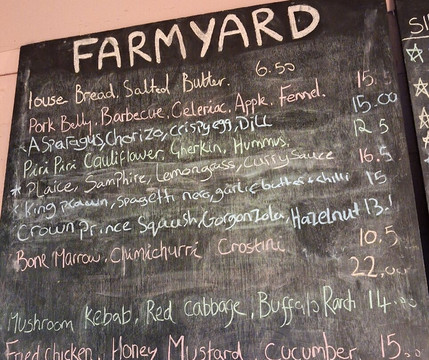 FARMYARD
SI
House Bread, Salted Butter. 6.50
Pork Belly, Barbecue, Celeriac, Apple, Fennel. 15.
Asparagus, Chorizo, crispy egg, Dill 15.00
Piri Piri Cauliflower, Gherkin, Hummus. 12.5
* Plaice, Samphire, Lemongrass, Curry Sauce 16.5
King prawn, Spagetti nero, garlic butter & chilli 15
Crown Prince Squash, Gorgonzola, Hazelnut 13.
Bone Marrow, Chimichurri Crostini 10.5
22.00
Mushroom Kebab, Red Cabbage, Buffalo Ranch 14.00
Fried Chicken, Honey Mustard Cucumber 15.